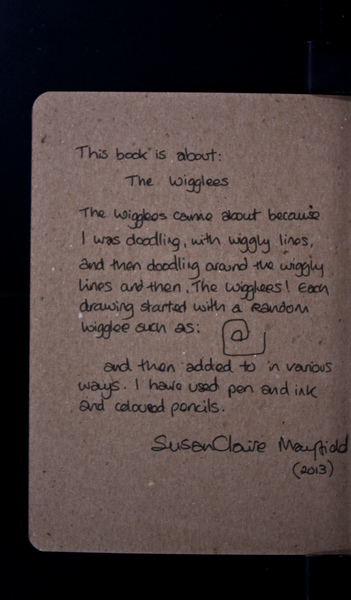 This book is about:
The Wigglees
The Wigglees came about because
I was doodling, with wiggly lines,
and then doodling around the wiggly
lines and then, The Wigglees! Each
drawing started with a random
wigglee such as:
and then added to in various
ways. I have used pen and ink
and coloured pencils.
SusanClaire Mayfield
(2013)